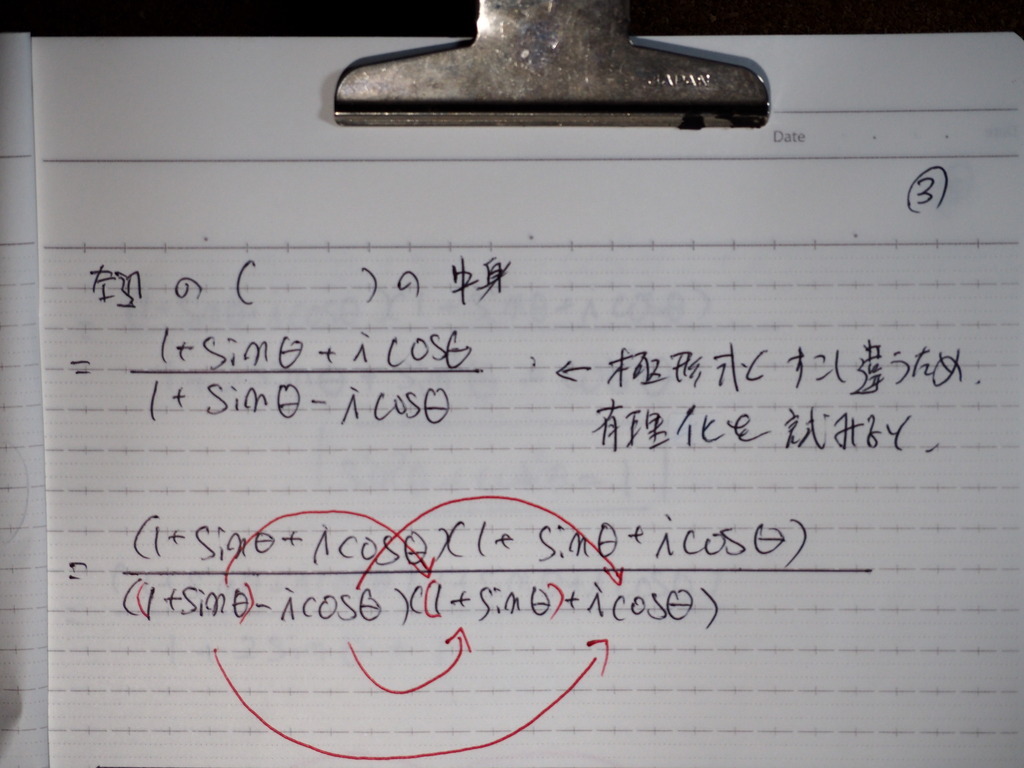 JAPAN
Date
③
左辺 の ( ) の 中身
= (1+sinθ+i cosθ)/(1+sinθ-i cosθ) ← 極形式とすこし違うため、
有理化を試みると、
= (1+sinθ+i cosθ)(1+ sinθ+i cosθ)/((1+sinθ)-i cosθ)((1+sinθ)+i cosθ)